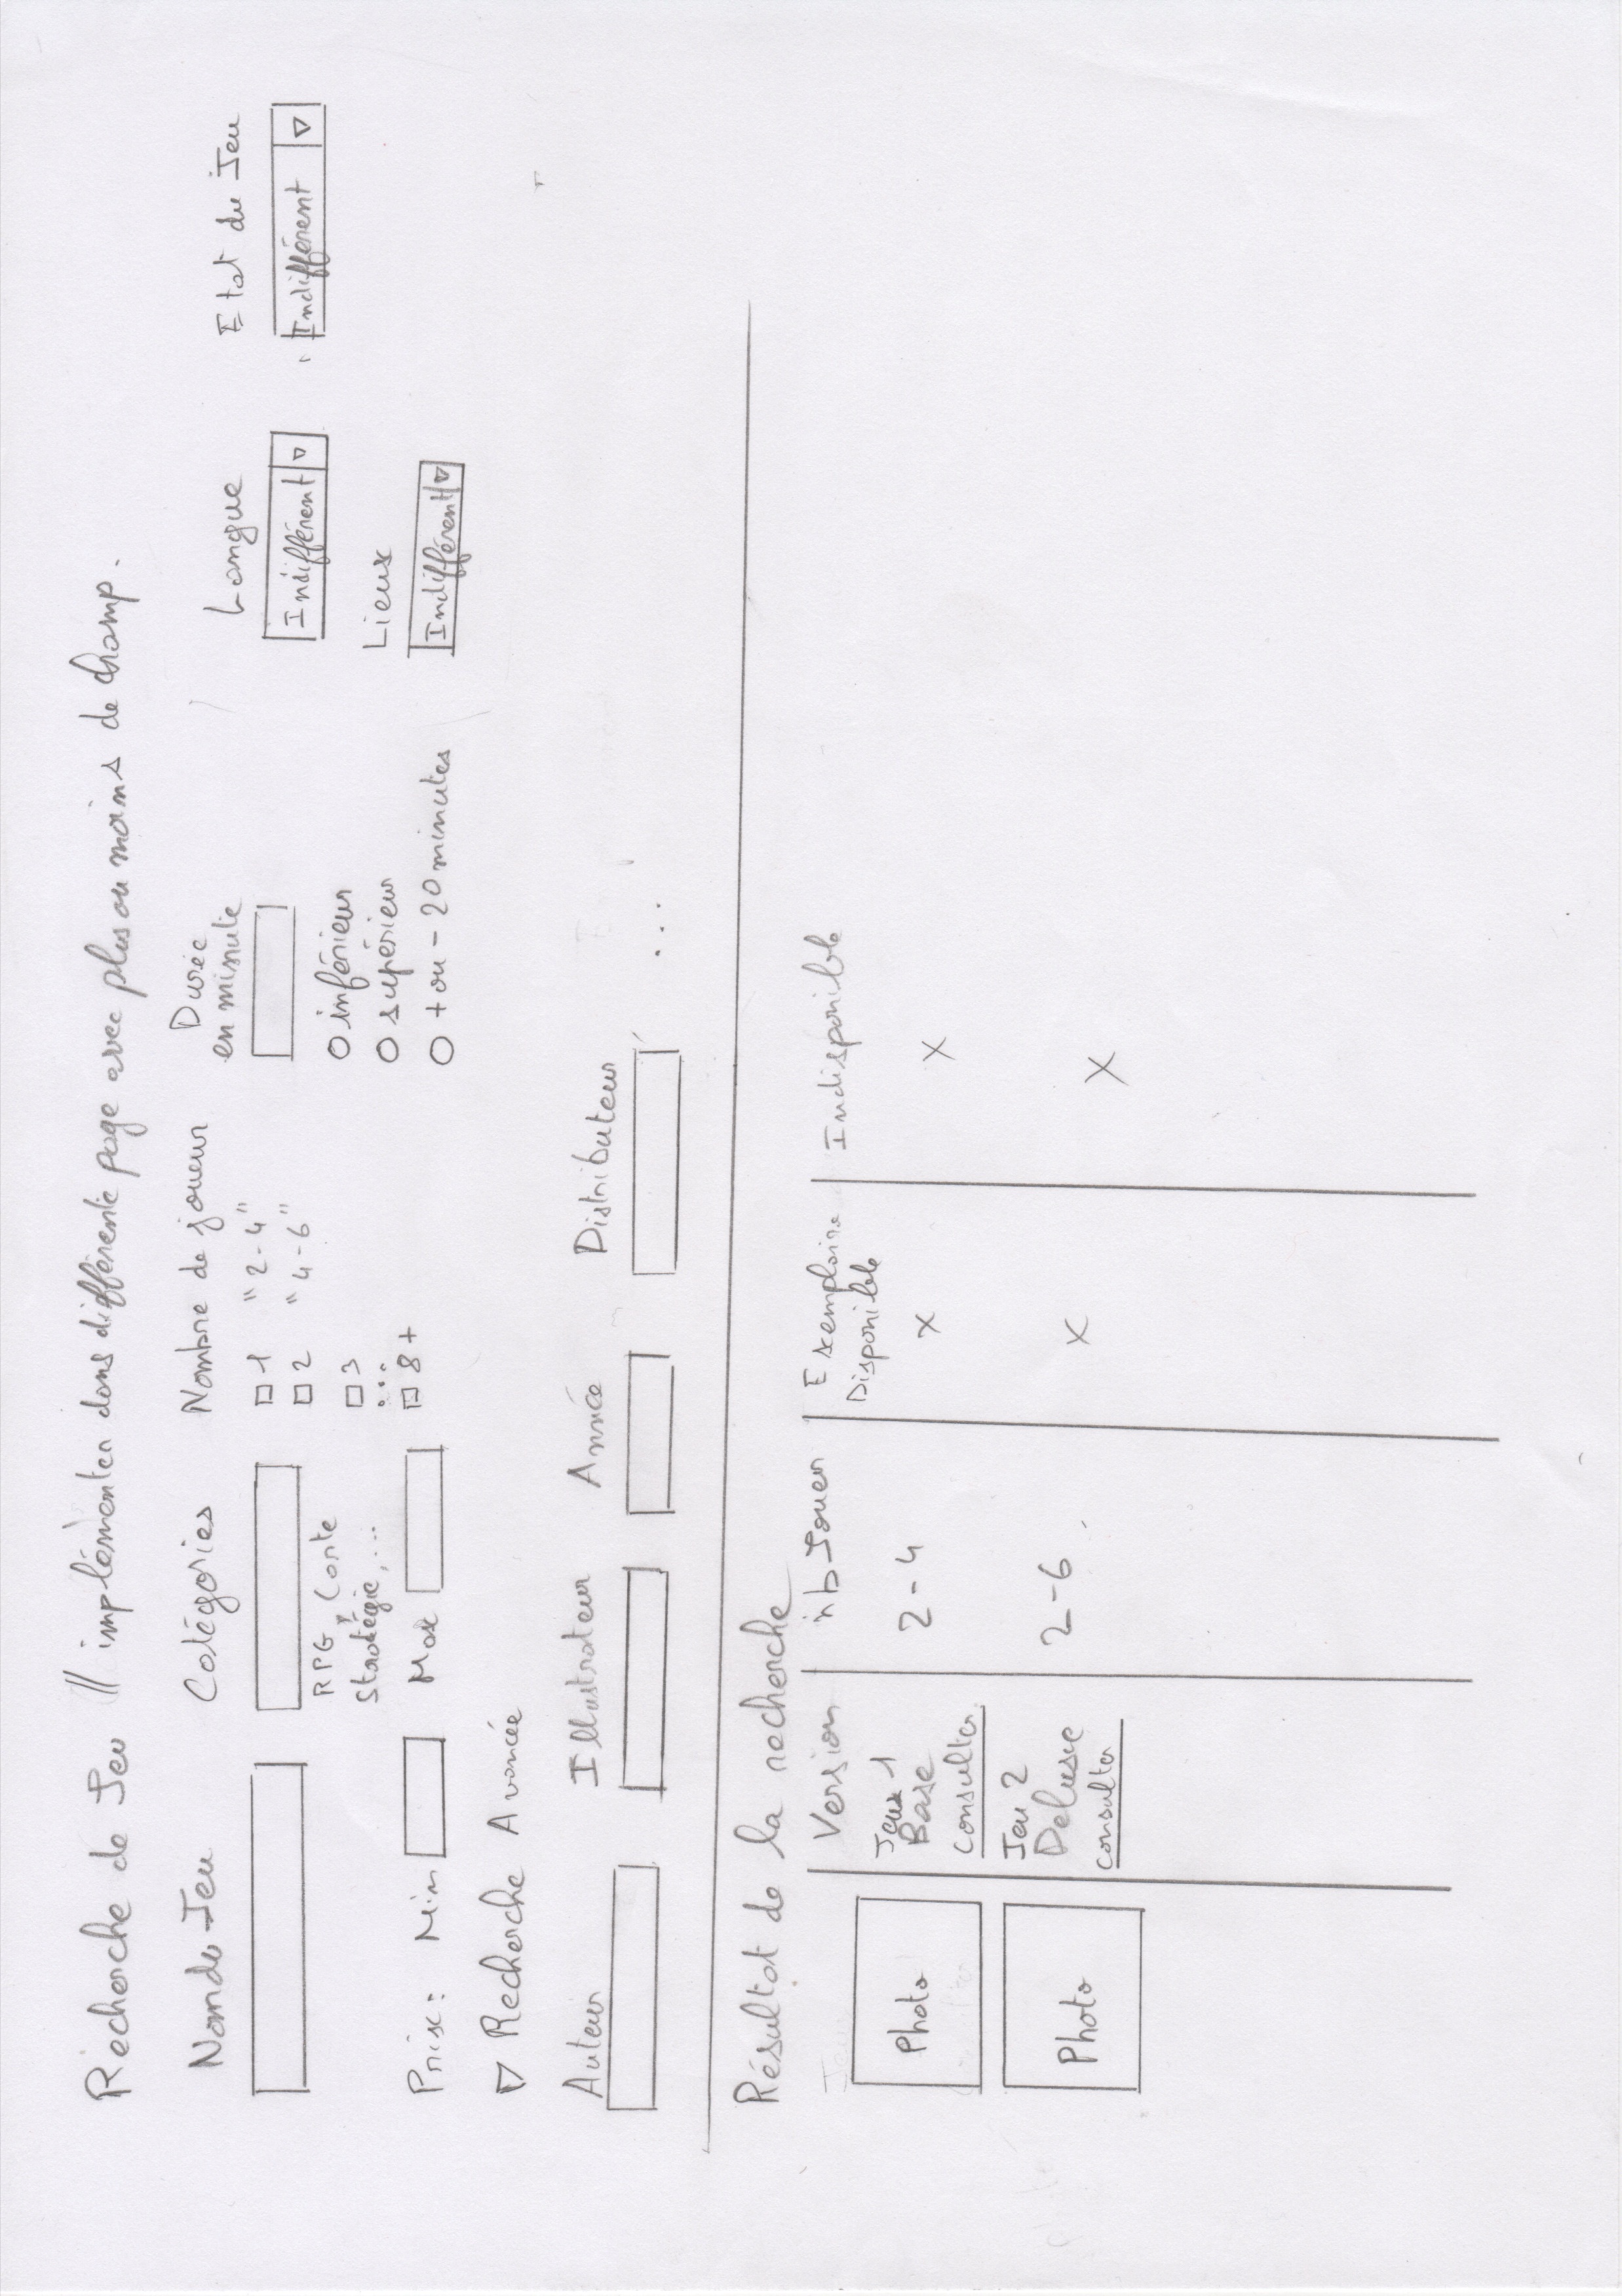 Recherche de Jeu // implémenter dans différente page avec plus ou moins de champ.
Nom du Jeu
Catégories
RPG, Carte
Stratégie, ...
Nombre de joueur
1 "2-4"
2 "4-6"
3
...
8+
Durée
en minute
inférieur
supérieur
+ ou - 20 minutes
Langue
Indifférent
Etat du Jeu
Indifférent
Lieux
Indifférent
Prix: Min Max
Recherche Avancée
Auteur Illustrateur Année Distributeur ...
Résultat de la recherche
Jeux Version nb Jouer Exemplaire
Disponible
Indisponible
Photo
Jeux 1
Base
consulter
2-4 X X
Photo
Jeu 2
Deluxe
consulter
2-6 X X